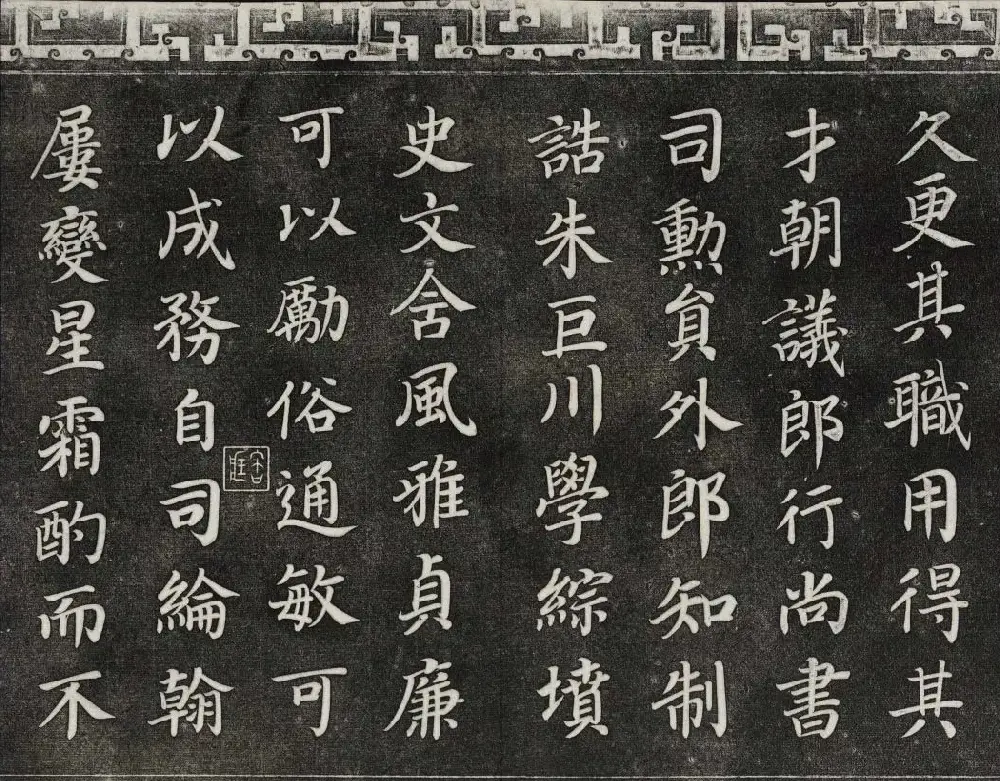 久更其職用得其
才朝議郎行尚書
司勳員外郎知制
誥朱巨川學綜墳
史文含風雅貞廉
可以勵俗通敏可
以成務自司綸翰
屢變星霜酌而不